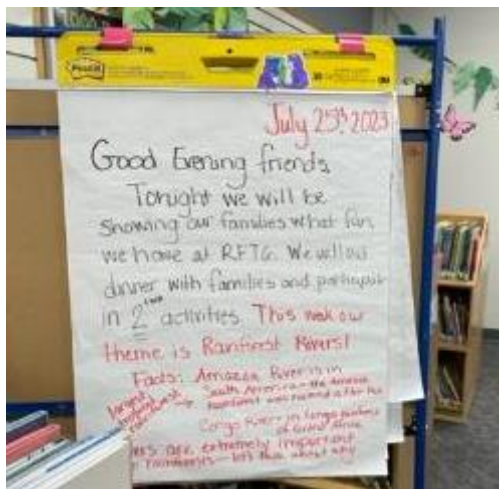 Post-it
3M
July 25th, 2023
Good Evening friends,
Tonight we will be
showing our families what fun
we have at RFTG. We will eat
dinner with families and participate
in 2 activities. This week our
theme is Rainforest Rivers!
Facts: Amazon River is in
South America - the Amazon
Rainforest was named after the
largest
rainforest
Congo River in
are extremely important
rainforests - let's talk about why